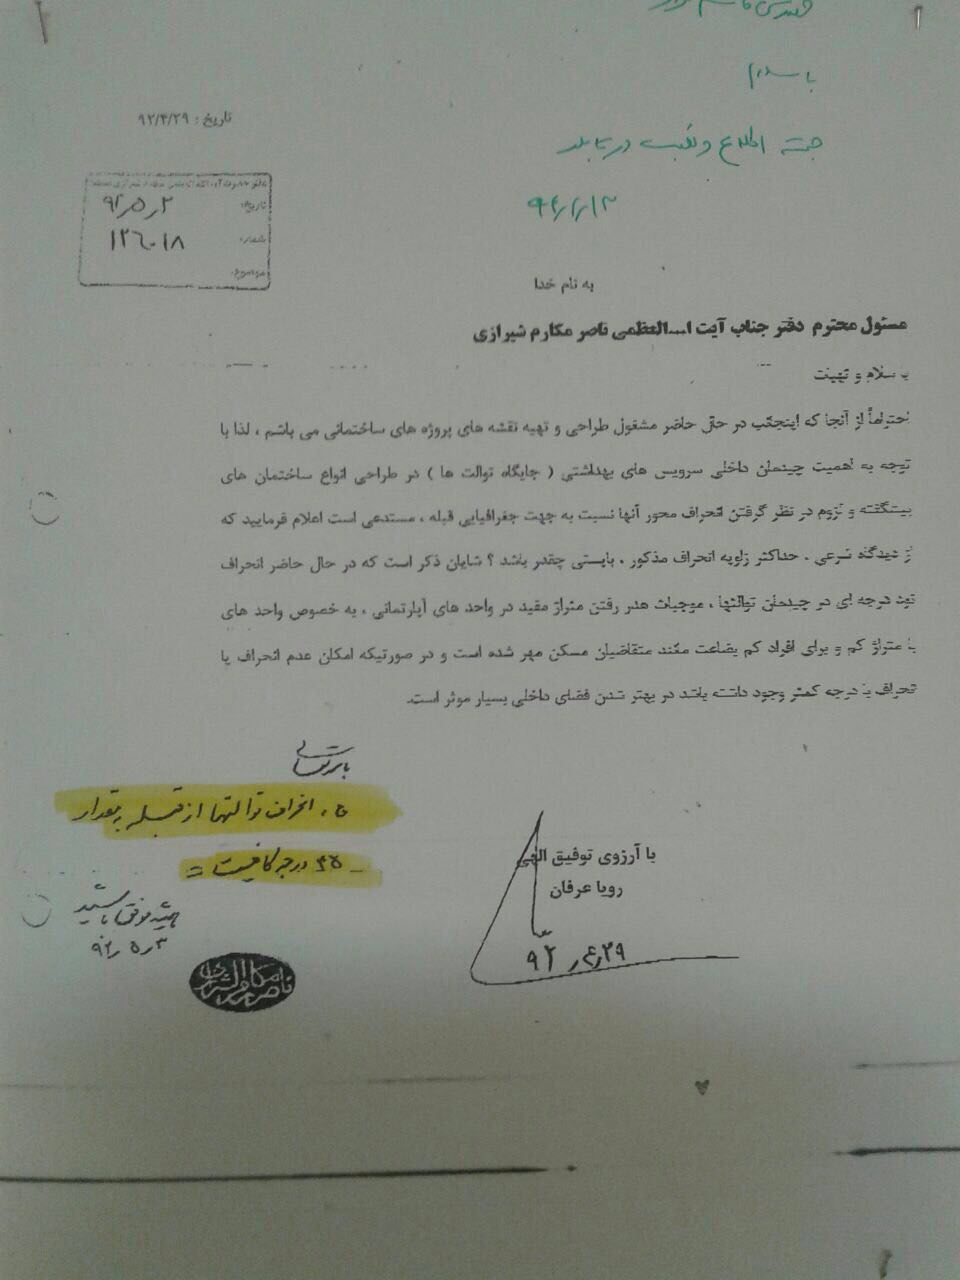 با سلام
جهت اطلاع و نصب در تابلو
تاریخ : ۹۲/۴/۲۹
تاریخ: ۹۲٫۵٫۲
شماره: ۱۲۶۰۱۸
موضوع:
به نام خدا
مسئول محترم دفتر جناب آیت ا...العظمی ناصر مکارم شیرازی
با سلام و تهنیت
احتراماً از آنجا که اینجانب در حال حاضر مشغول طراحی و تهیه نقشه های پروژه های ساختمانی می باشم ، لذا با
توجه به اهمیت چیدمان داخلی سرویس های بهداشتی ( جایگاه توالت ها ) در طراحی انواع ساختمان های
و لزوم در نظر گرفتن انحراف محور آنها نسبت به جهت جغرافیایی قبله ، مستدعی است اعلام فرمایید که
از دیدگاه شرعی ، حداکثر زاویه انحراف مذکور ، بایستی چقدر باشد ؟ شایان ذکر است که در حال حاضر انحراف
نود درجه ای در چیدمان توالتها ، موجبات هدر رفتن متراژ مفید در واحد های آپارتمانی ، به خصوص واحد های
با متراژ کم و برای افراد کم بضاعت مانند متقاضیان مسکن مهر شده است و در صورتیکه امکان عدم انحراف یا
انحراف با درجه کمتر وجود داشته باشد در بهتر شدن فضای داخلی بسیار موثر است.
با آرزوی توفیق الهی
رویا عرفان
۹۲٫۴٫۲۹
باسمه تعالی
انحراف توالتها از قبله بمقدار
۴۵ درجه کافیست =
همیشه موفق باشید
۹۲٫۵٫۳
ناصر مکارم الشیرازی